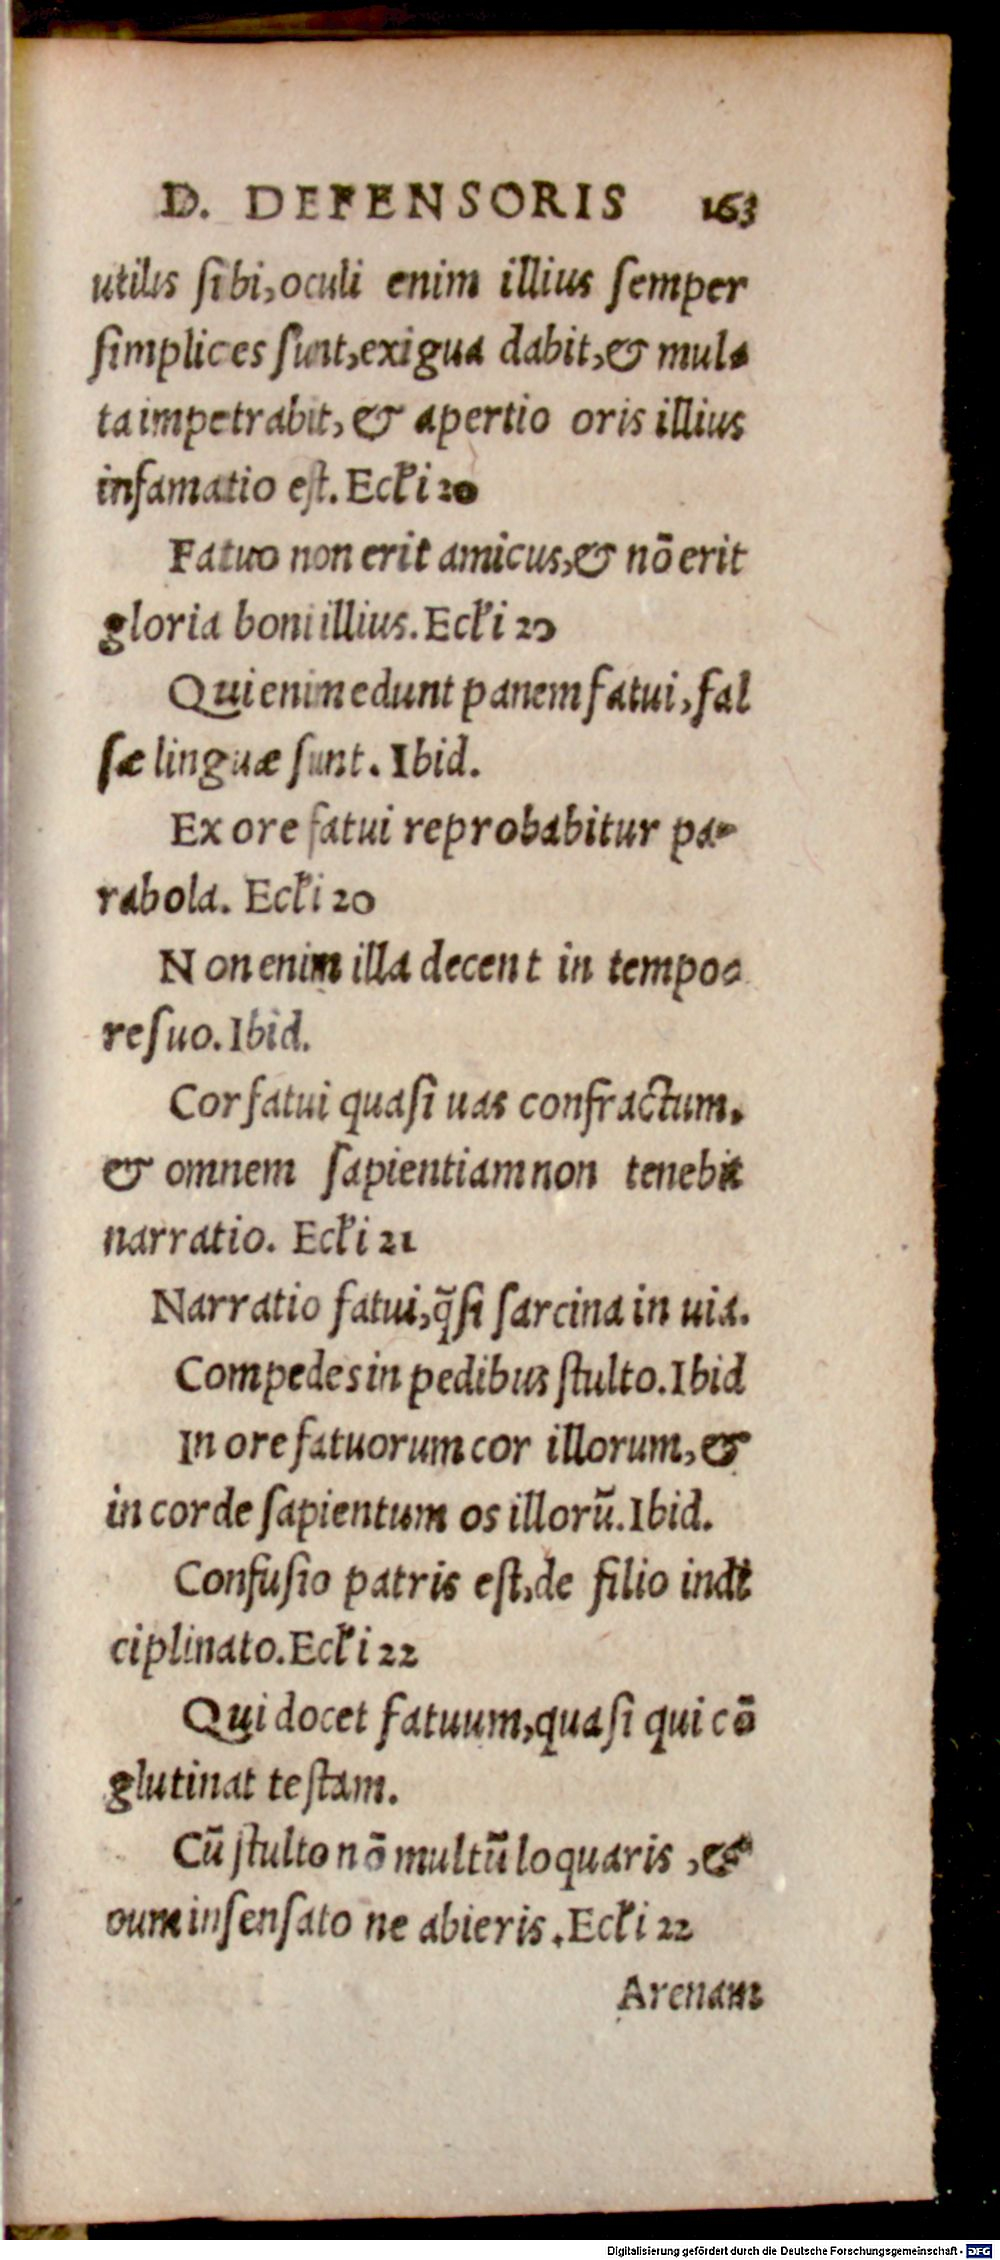 D. DEFENSORIS 163
utilis ſibi, oculi enim illius ſemper
ſimplices ſunt, exigua dabit, & mul-
ta impetrabit, & apertio oris illius
infamatio eſt. Eccľi 20
Fatuo non erit amicus, & nō erit
gloria boni illius. Eccľi 20
Qui enim edunt panem fatui, fal
ſæ linguæ ſunt. Ibid.
Ex ore fatui reprobabitur pa-
rabola. Eccľi 20
Non enim illa decent in tempo-
re ſuo. Ibid.
Cor fatui quaſi uas confractum.
& omnem ſapientiam non tenebit
narratio. Eccľi 21
Narratio fatui, q̄ſi ſarcina in uia.
Compedes in pedibus ſtulto. Ibid
In ore fatuorum cor illorum, &
in corde ſapientum os illorū. Ibid.
Confuſio patris eſt, de filio indi
ciplinato. Eccľi 22
Qui docet fatuum, quaſi qui cō
glutinat teſtam.
Cū ſtulto nō multū loquaris, &
oum inſenſato ne abieris. Eccľi 22
Arenam
Digitalisierung gefördert durch die Deutsche Forschungsgemeinschaft - DFG